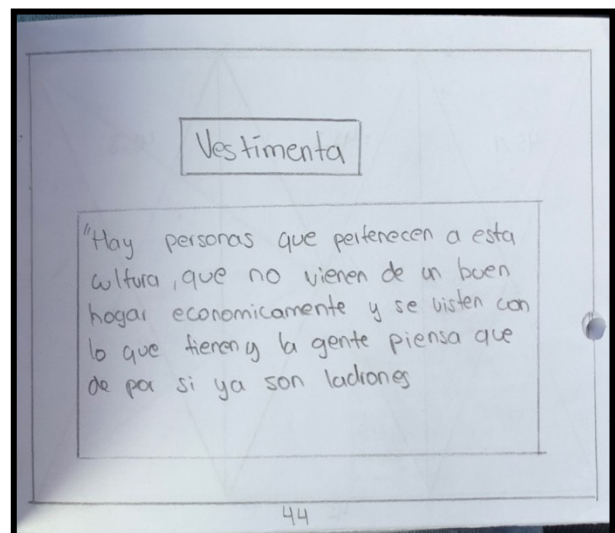 Vestimenta
"Hay personas que pertenecen a esta
cultura, que no vienen de un buen
hogar economicamente y se visten con
lo que tienen y la gente piensa que
de por si ya son ladrones
44